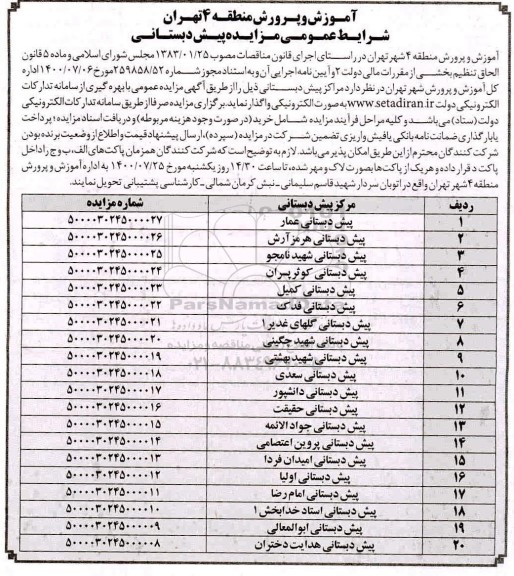 آموزش و پرورش منطقه ۴ تهران
شرایط عمومی مزایده پیش دبستانی
آموزش و پرورش منطقه ۴ شهر تهران در راستای اجرای قانون مناقصات مصوب ۱۳۸۳/۰۱/۲۵ مجلس شورای اسلامی و ماده ۵ قانون
الحاق تنظیم بخشی از مقررات مالی دولت ۲ و آیین نامه اجرایی آن و به استناد مجوز شماره ۲۵۹۸۵۸/۵۲ مورخ ۱۴۰۰/۰۷/۰۶ اداره
کل آموزش و پرورش شهر تهران در نظر دارد مراکز پیش دبستانی ذیل را از طریق آگهی مزایده عمومی با بهره گیری از سامانه تدارکات
الکترونیکی دولت www.setadiran.ir به صورت الکترونیکی واگذار نماید. برگزاری مزایده صرفا از طریق سامانه تدارکات الکترونیکی
دولت (ستاد) می باشد و کلیه مراحل فرآیند مزایده شامل خرید (در صورت وجود هزینه مربوطه) و دریافت اسناد مزایده، پرداخت
یا بارگذاری ضمانت نامه بانکی یا فیش واریزی تضمین شرکت در مزایده (سپرده)، ارسال پیشنهاد قیمت و اطلاع از وضعیت برنده بودن
شرکت کنندگان محترم از این طریق امکان پذیر می باشد. لازم به توضیح است که شرکت کنندگان همزمان پاکت های الف، ب و ج را داخل
پاکت د قرار داده و هر یک از پاکت ها بصورت لاک و مهر شده، تا ساعت ۱۴/۳۰ روز یکشنبه مورخ ۱۴۰۰/۰۷/۲۵ به اداره آموزش و پرورش
منطقه ۴ شهر تهران واقع در اتوبان سردار شهید قاسم سلیمانی - نبش کرمان شمالی - کارشناسی پشتیبانی تحویل نمایند.
ردیف مرکز پیش دبستانی شماره مزایده
۱ پیش دبستانی عمار ۵۰۰۰۰۳۰۲۴۵۰۰۰۰۲۷
۲ پیش دبستانی هرمز آرش ۵۰۰۰۰۳۰۲۴۵۰۰۰۰۲۶
۳ پیش دبستانی شهید نامجو ۵۰۰۰۰۳۰۲۴۵۰۰۰۰۲۵
۴ پیش دبستانی کوثر پسران ۵۰۰۰۰۳۰۲۴۵۰۰۰۰۲۴
۵ پیش دبستانی کمیل ۵۰۰۰۰۳۰۲۴۵۰۰۰۰۲۳
۶ پیش دبستانی فدک ۵۰۰۰۰۳۰۲۴۵۰۰۰۰۲۲
۷ پیش دبستانی گلهای غدیر ۱ ۵۰۰۰۰۳۰۲۴۵۰۰۰۰۲۱
۸ پیش دبستانی شهید چگینی ۵۰۰۰۰۳۰۲۴۵۰۰۰۰۲۰
۹ پیش دبستانی شهید بهشتی ۵۰۰۰۰۳۰۲۴۵۰۰۰۰۱۹
۱۰ پیش دبستانی سعدی ۵۰۰۰۰۳۰۲۴۵۰۰۰۰۱۸
۱۱ پیش دبستانی دانشپور ۵۰۰۰۰۳۰۲۴۵۰۰۰۰۱۷
۱۲ پیش دبستانی حقیقت ۵۰۰۰۰۳۰۲۴۵۰۰۰۰۱۶
۱۳ پیش دبستانی جواد الائمه ۵۰۰۰۰۳۰۲۴۵۰۰۰۰۱۵
۱۴ پیش دبستانی پروین اعتصامی ۵۰۰۰۰۳۰۲۴۵۰۰۰۰۱۴
۱۵ پیش دبستانی امیدان فردا ۵۰۰۰۰۳۰۲۴۵۰۰۰۰۱۳
۱۶ پیش دبستانی اولیا ۵۰۰۰۰۳۰۲۴۵۰۰۰۰۱۲
۱۷ پیش دبستانی امام رضا ۵۰۰۰۰۳۰۲۴۵۰۰۰۰۱۱
۱۸ پیش دبستانی استاد خدابخش ۱ ۵۰۰۰۰۳۰۲۴۵۰۰۰۰۱۰
۱۹ پیش دبستانی ابوالمعالی ۵۰۰۰۰۳۰۲۴۵۰۰۰۰۰۹
۲۰ پیش دبستانی هدایت دختران ۵۰۰۰۰۳۰۲۴۵۰۰۰۰۰۸